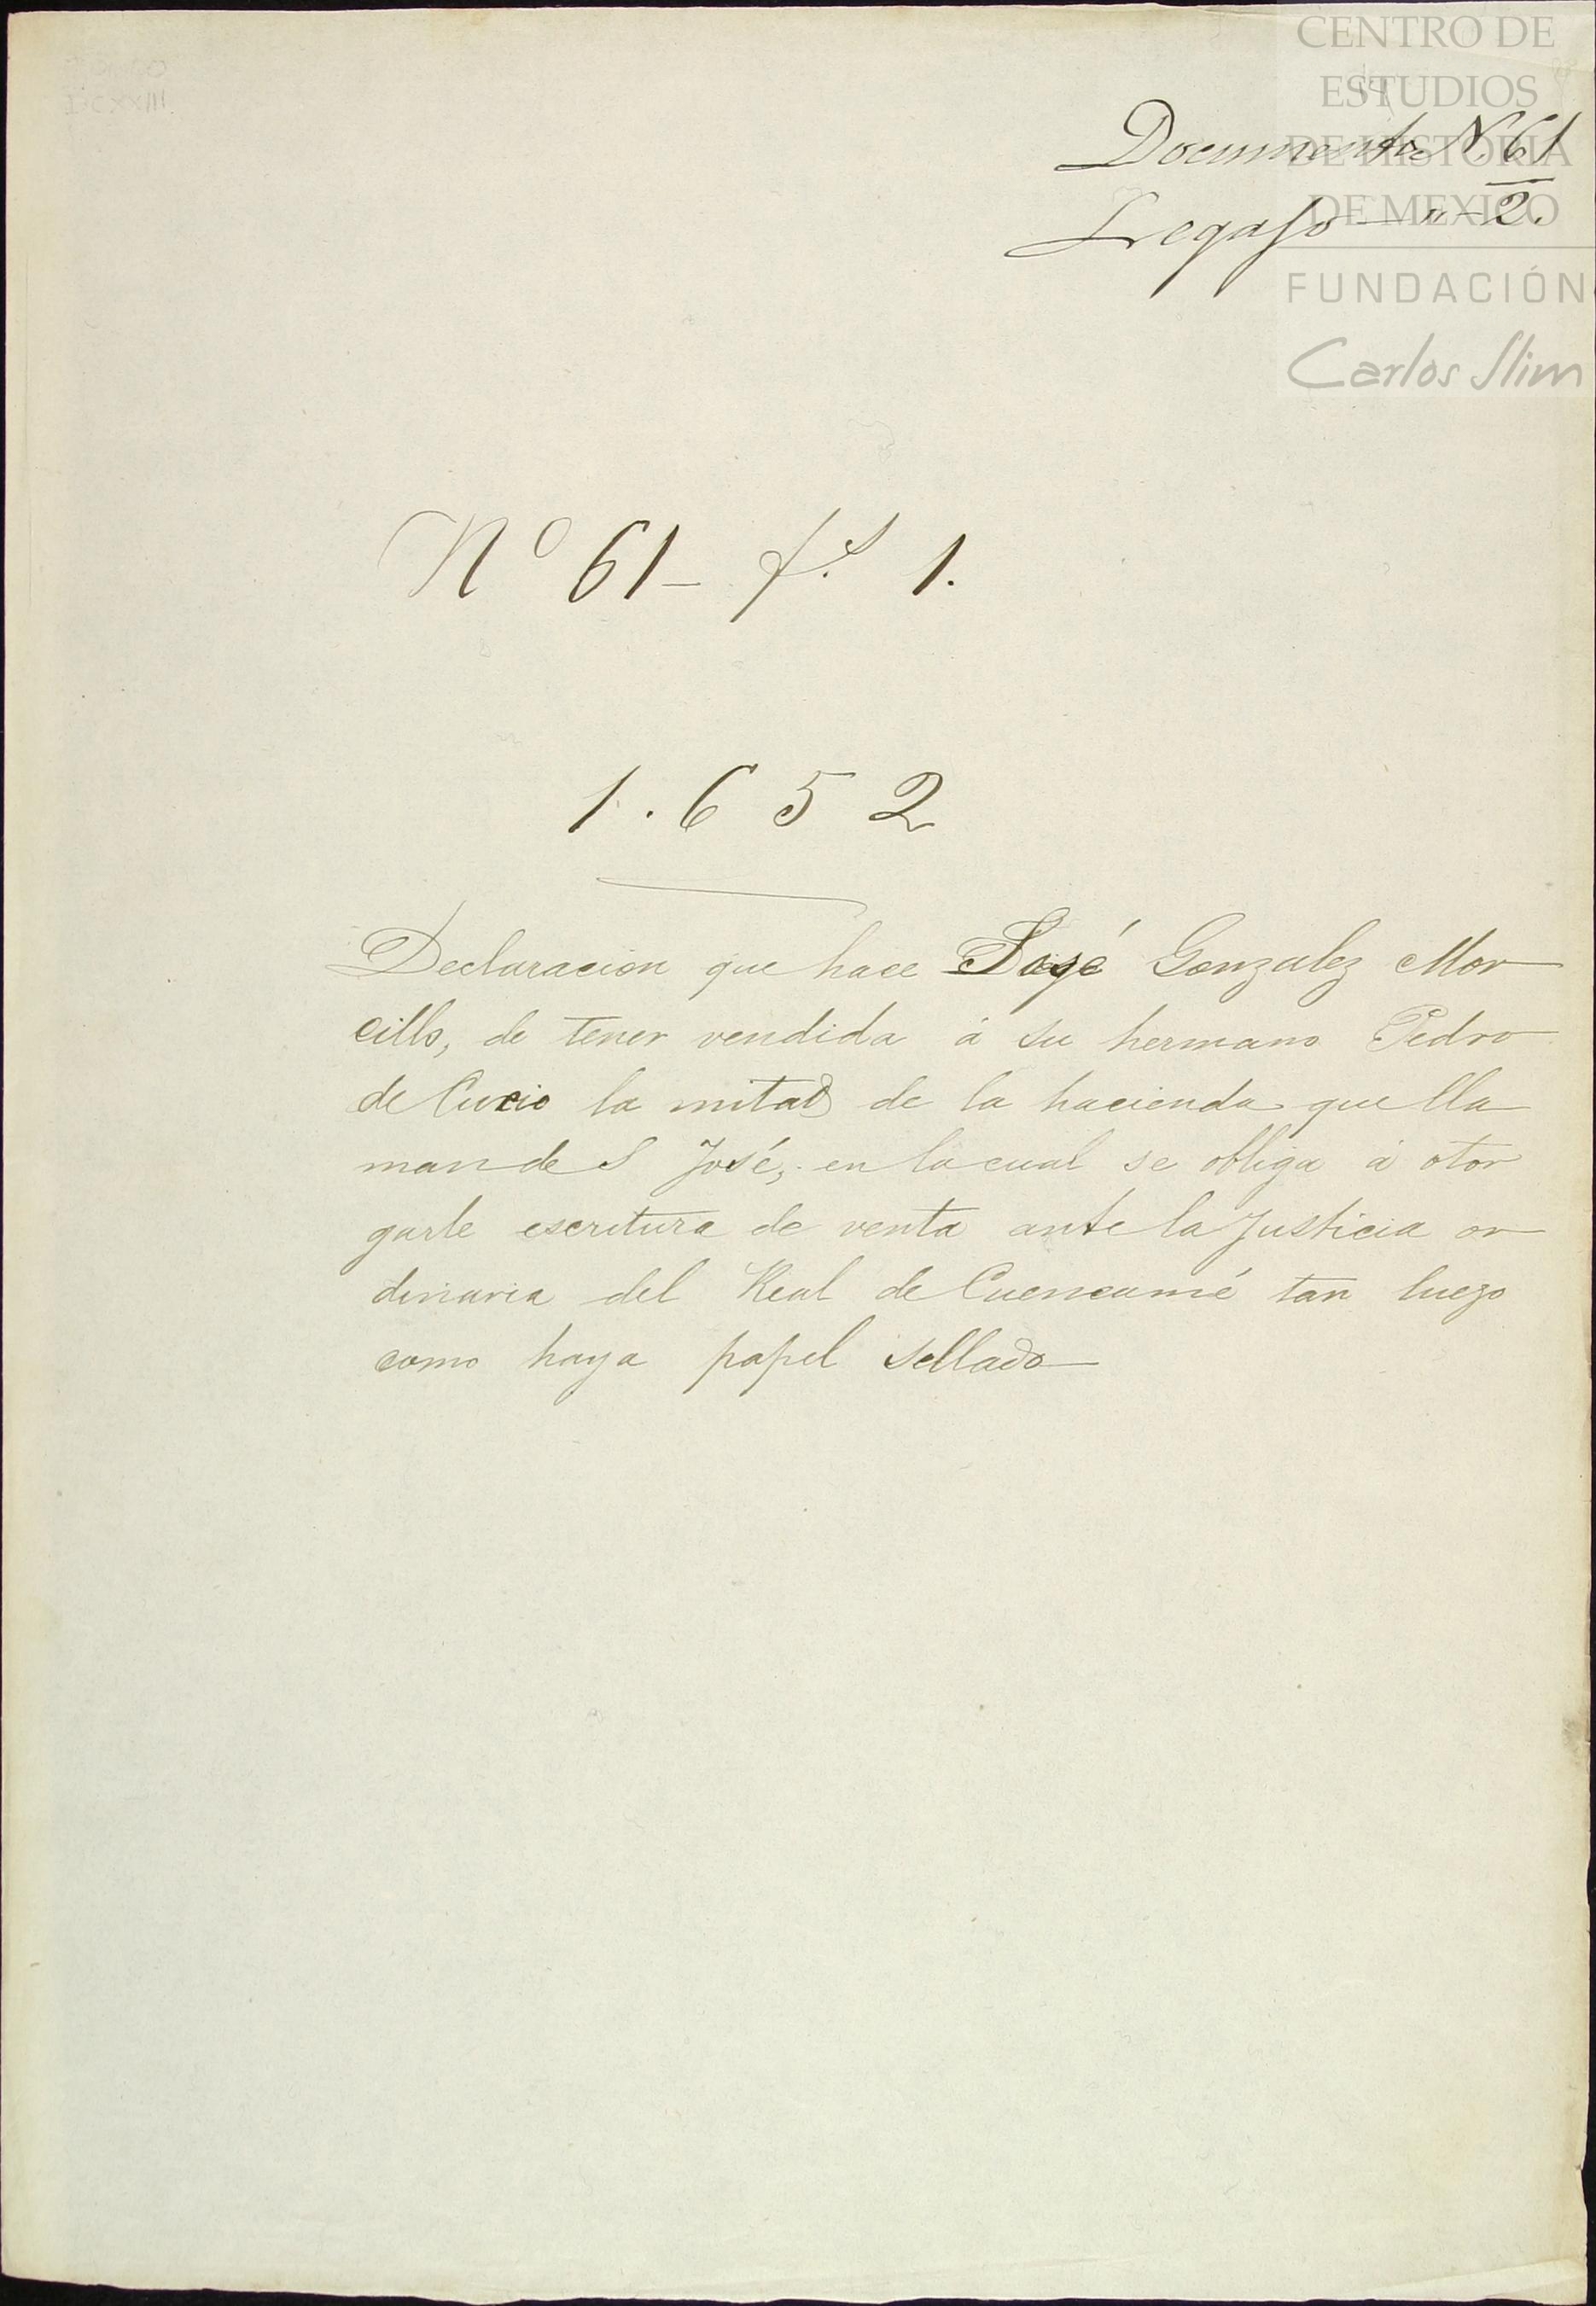 CENTRO DE
ESTUDIOS
DE HISTORIA
DE MEXICO
FUNDACIÓN
Carlos Slim
Documento N. 61
Legajo — " — 2.
Nº 61 — f.s 1.
1.652
Declaracion que hace José Gonzalez Mor
cillo, de tener vendida á su hermano Pedro
de Curcio la mitad de la hacienda que lla
man de S José, en la cual se obliga á otor
garle escritura de venta ante la Justicia or
dinaria del Real de Cuencamé tan luego
como haya papel sellado